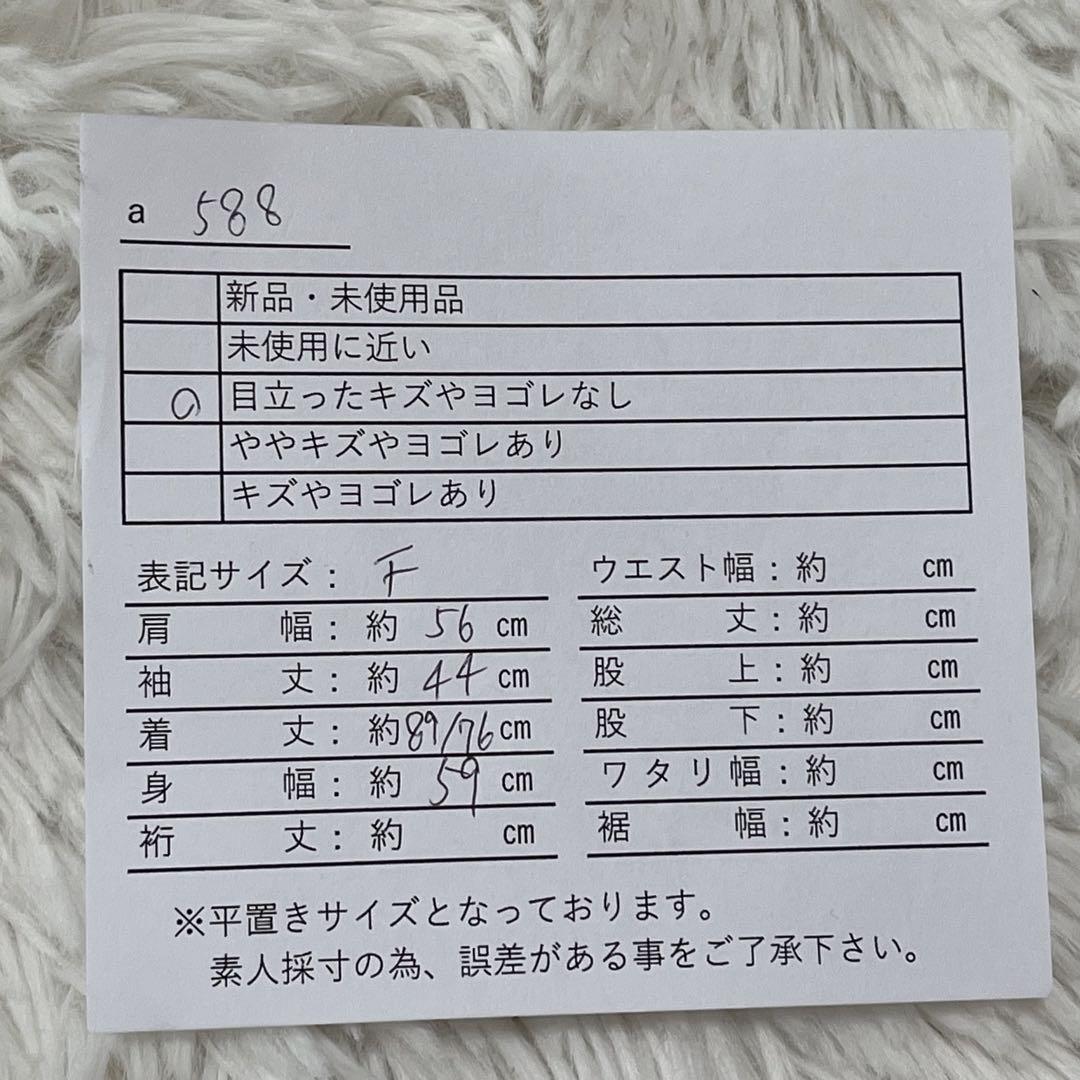 a 588
新品・未使用品
未使用に近い
○ 目立ったキズやヨゴレなし
ややキズやヨゴレあり
キズやヨゴレあり
表記サイズ： F
肩 幅： 約 56 cm
袖 丈： 約 44 cm
着 丈： 約 89/76 cm
身 幅： 約 59 cm
裄 丈： 約 cm
ウエスト幅：約 cm
総 丈：約 cm
股 上：約 cm
股 下：約 cm
ワタリ幅：約 cm
裾 幅：約 cm
※平置きサイズとなっております。
素人採寸の為、誤差がある事をご了承下さい。